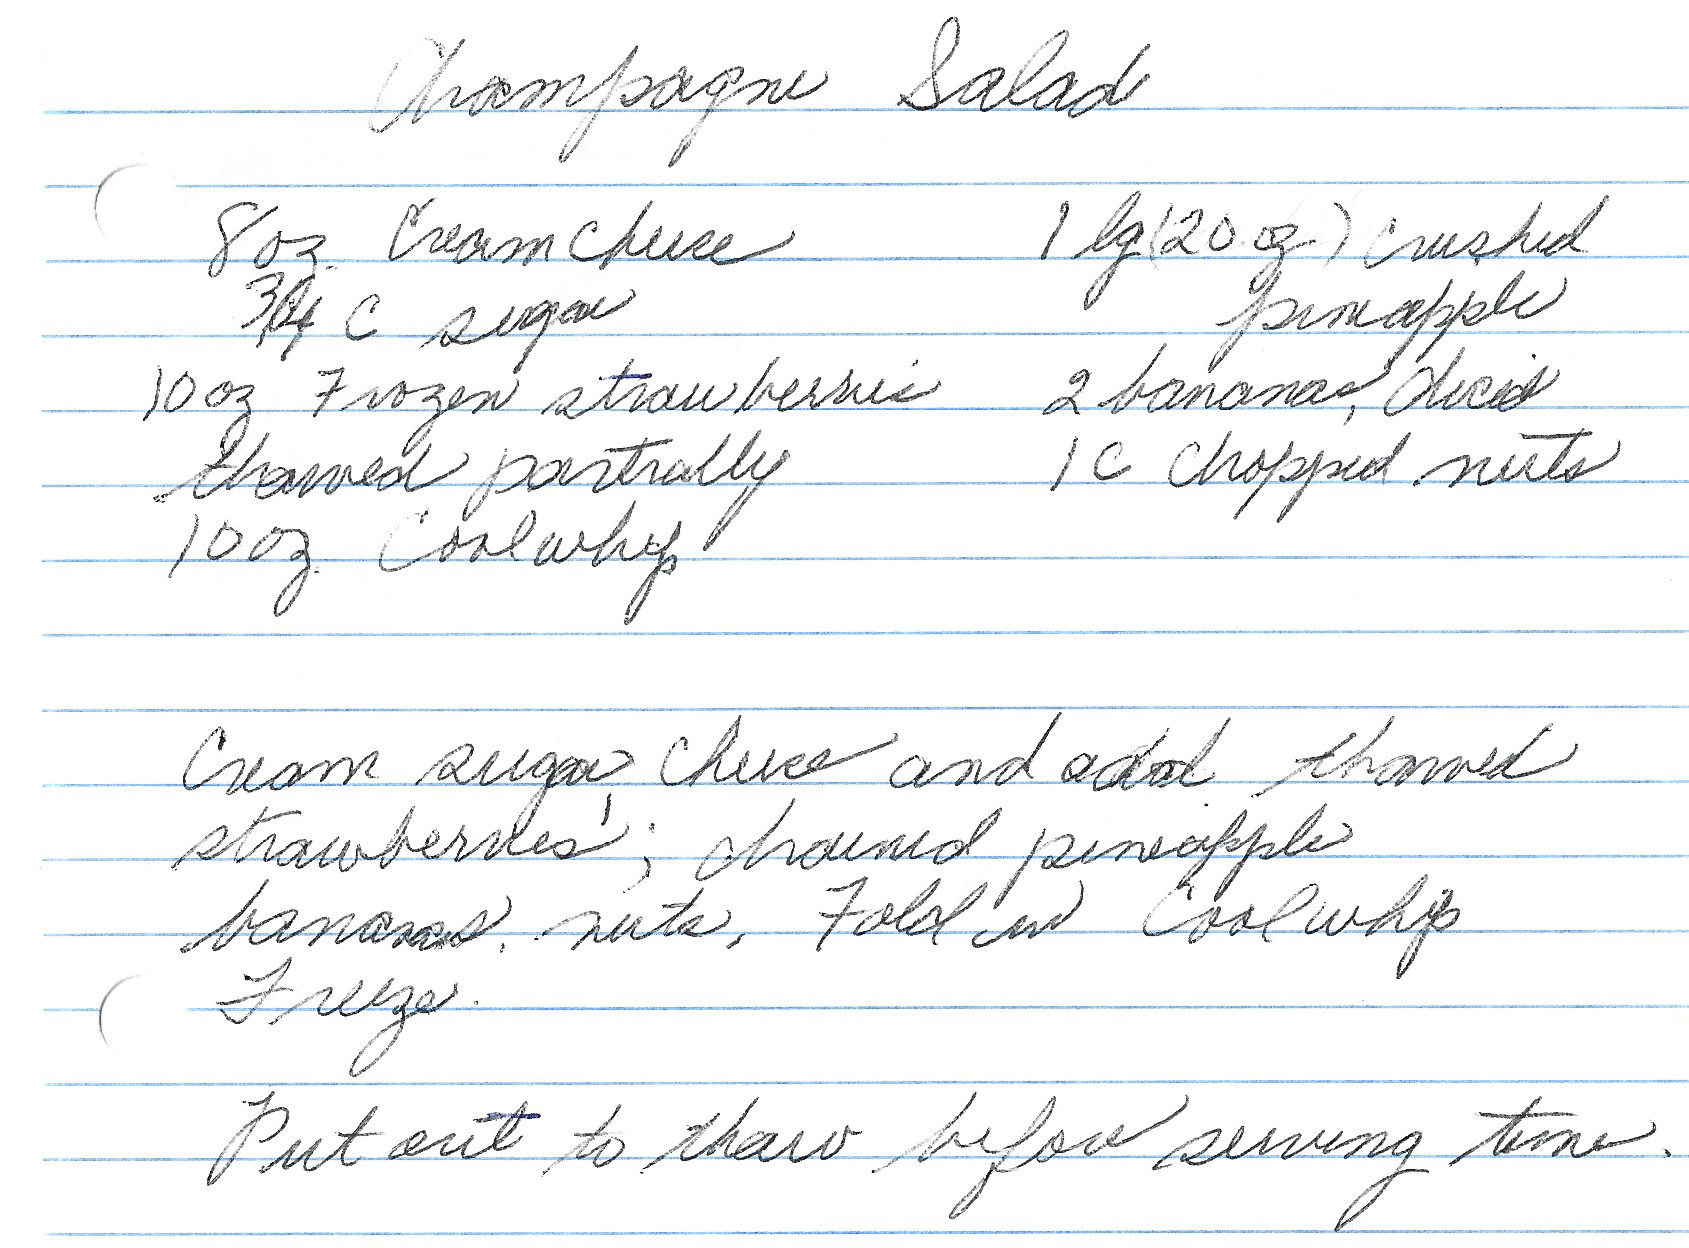 Champagne Salad
8 oz. Cream Cheese
3/4 C sugar
10 oz Frozen strawberries
thawed partially
10 oz. Coolwhip
1 lg (20 oz) crushed
pineapple
2 bananas, diced
1 C chopped nuts
Cream sugar, cheese and add thawed
strawberries; drained pineapple
bananas, nuts. Fold in Coolwhip
Freeze.
Put out to thaw before serving time.